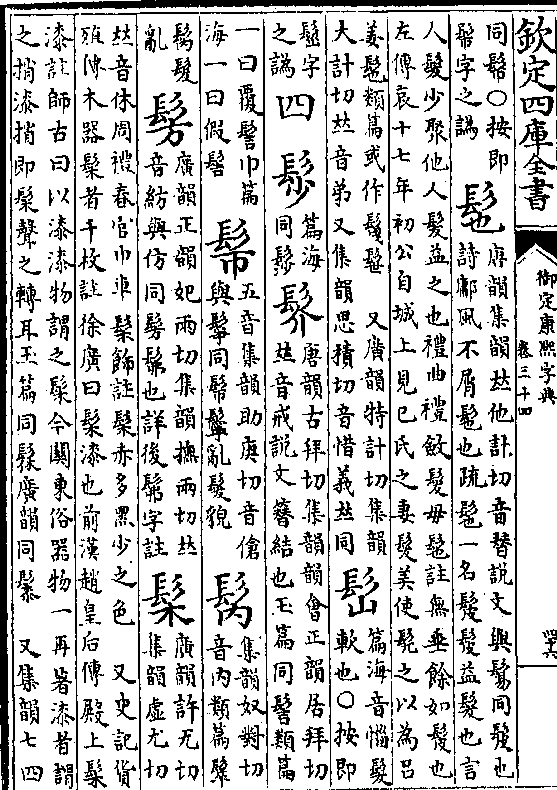 欽定四庫全書
御定康熙字典
卷三十四
四十六
同
○按即
字之譌
髢
唐韻集韻𠀤他計切音替說文與鬄同髲也
詩鄘風不屑髢也疏髢一名髲髲益髮也言
人髮少聚他人髮益之也禮曲禮斂髮毋髢註無垂餘如髲也
左傳哀十七年初公自城上見己氏之妻髮美使髡之以為呂
姜髢類篇或作鬄 又廣韻特計切集韻
大計切𠀤音弟又集韻思積切音惜義𠀤同
篇海音惱髮
軟也○按即
字
之譌
四
篇海
同
髟介
唐韻古拜切集韻韻會正韻居拜切
𠀤音戒說文簪結也玉篇同髻類篇
一曰覆髻巾篇
海一曰假髻
五音集韻助庚切音傖
與鬇同鬇鬡亂髮貌
集韻奴對切
音内類篇
髮
亂
髣
廣韻正韻妃兩切集韻撫兩切𠀤
音紡與仿同髣髴也詳後髴字註
髤
廣韻許尤切
集韻虛尤切
𠀤音休周禮春官巾車髤飾註髤赤多黑少之色 又史記貨
殖傳木器髤者千枚註徐廣曰髤漆也前漢趙皇后傳殿上髤
漆註師古曰以漆漆物謂之髤今關東俗器物一再著漆者謂
之捎漆捎即髤聲之轉耳玉篇同髹廣韻同䰍 又集韻七四